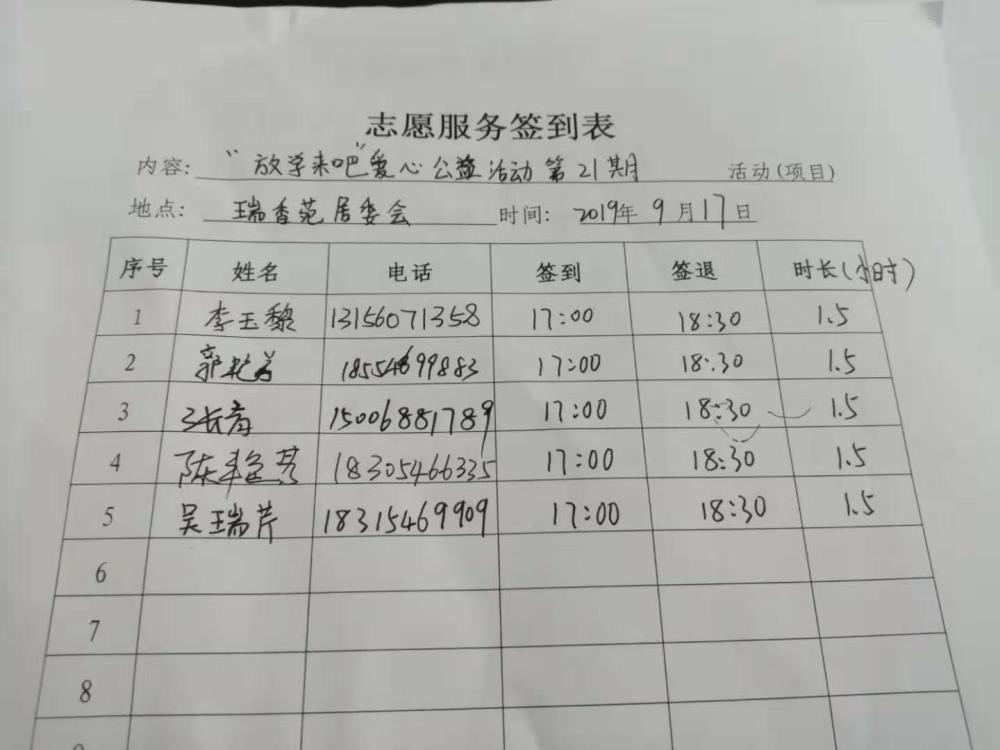 志愿服务签到表
内容: "放学来吧"爱心公益活动第21期 活动(项目)
地点: 瑞香苑居委会 时间: 2019年9月17日
序号 姓名 电话 签到 签退 时长(小时)
1 李玉黎 13156071358 17:00 18:30 1.5
2 郭 18554699883 17:00 18:30 1.5
3 15006881789 17:00 18:30 1.5
4 陈 18305466335 17:00 18:30 1.5
5 吴瑞芹 18315469909 17:00 18:30 1.5
6
7
8